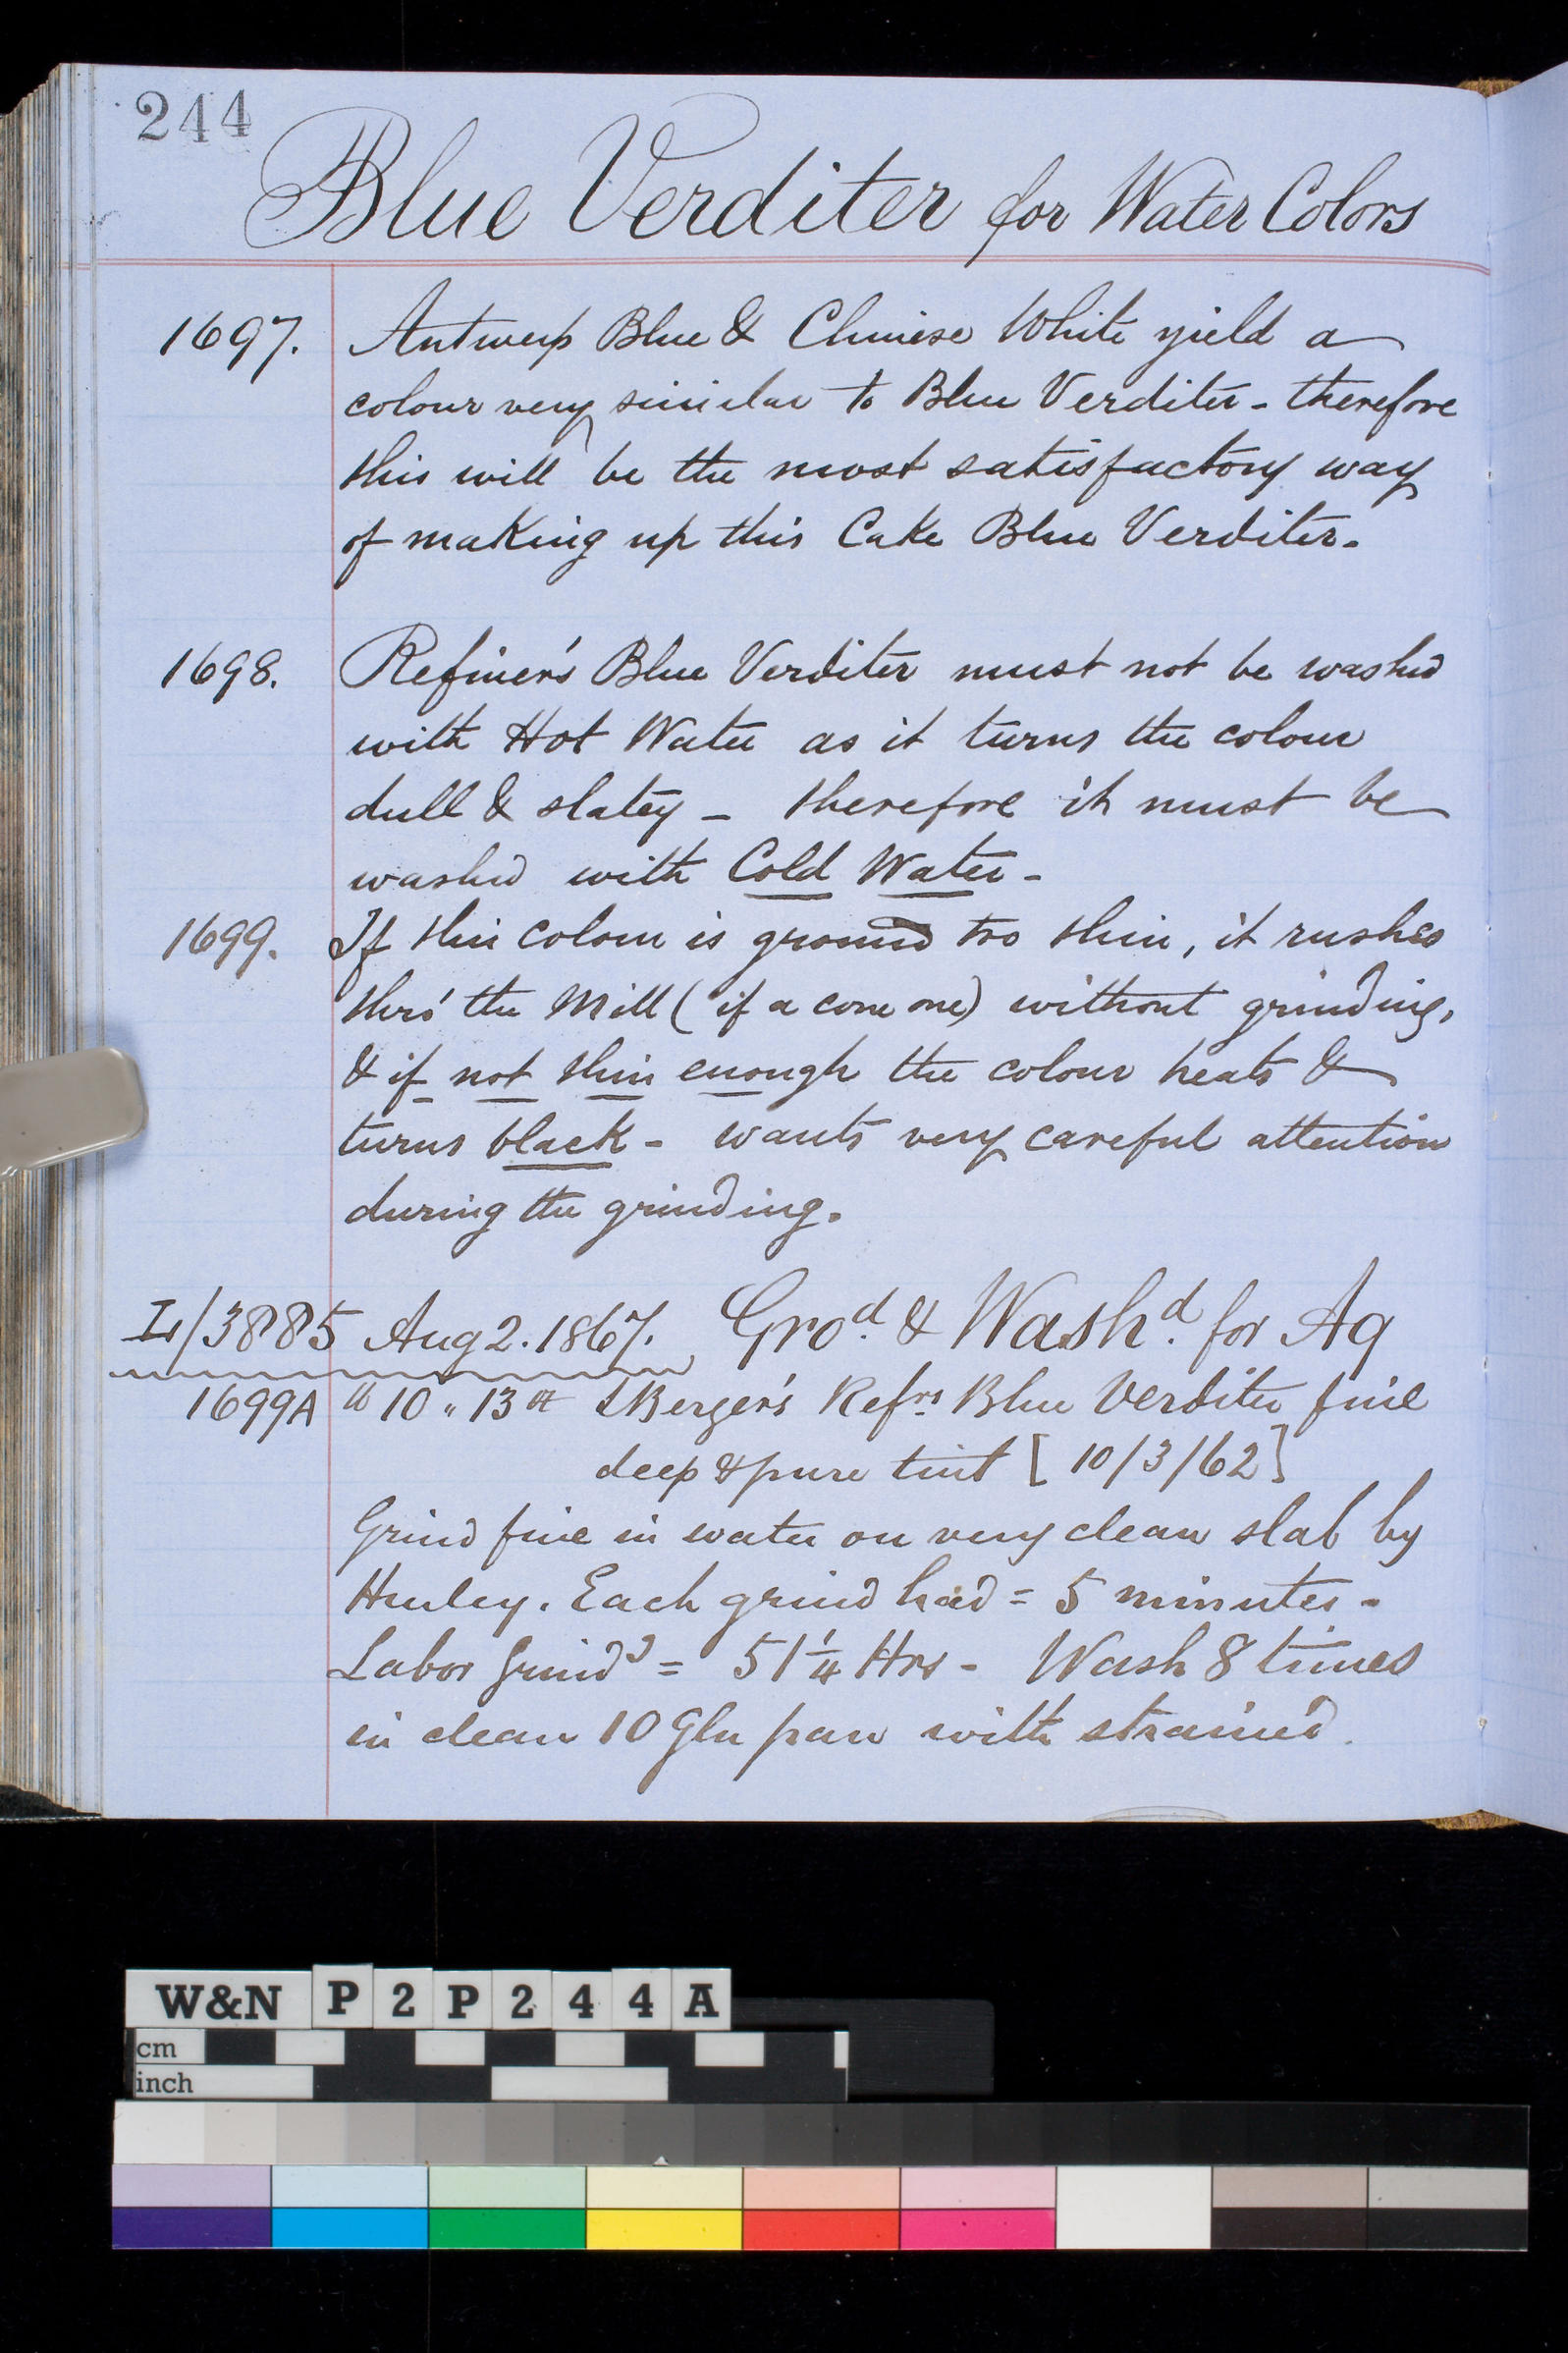 244
Blue Verditer for Water Colors
1697. Antwerp Blue & Chinese White yield a
colour very similar to Blue Verditer - therefore
this will be the most satisfactory way
of making up this Cake Blue Verditer -
1698. Refiner's Blue Verditer must not be washed
with Hot Water as it turns the colour
dull & slatey - therefore it must be
washed with Cold Water -
1699. If this colour is ground too thin, it rushes
thro' the Mill (if a cone one) without grinding,
& if not thin enough the colour heats &
turns black - wants very careful attention
during the grinding.
L/3885 Aug 2. 1867. Gro.d & Wash.d for Aq
1699A lb 10 " 13 oz LBerger's Refrs Blue Verditer fine
deep & pure tint [10/3/62]
Grind fine in water on very clean slab by
Henley. Each grind had = 5 minutes -
Labor Grindg = 51 1/4 Hrs - Wash 8 times
in clean 10 Gln pan with strained
W&N P2P244A
cm
inch